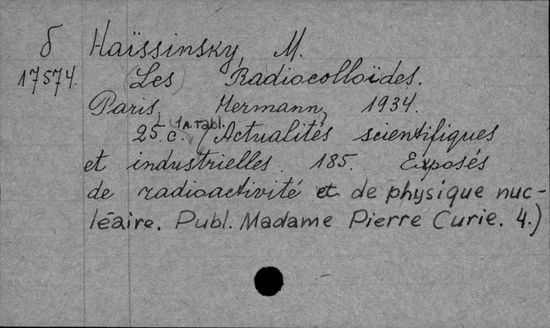 б Haïssinsky, M.
17574. (Les) Radiocolloïdes.
Paris, Hermann, 1934.
25 c. 1 л. табл. (Actualités scientifiques
et industrielles 185. Exposés
de radioactivité et de physique nuc-
léaire. Publ. Madame Pierre Curie. 4.)